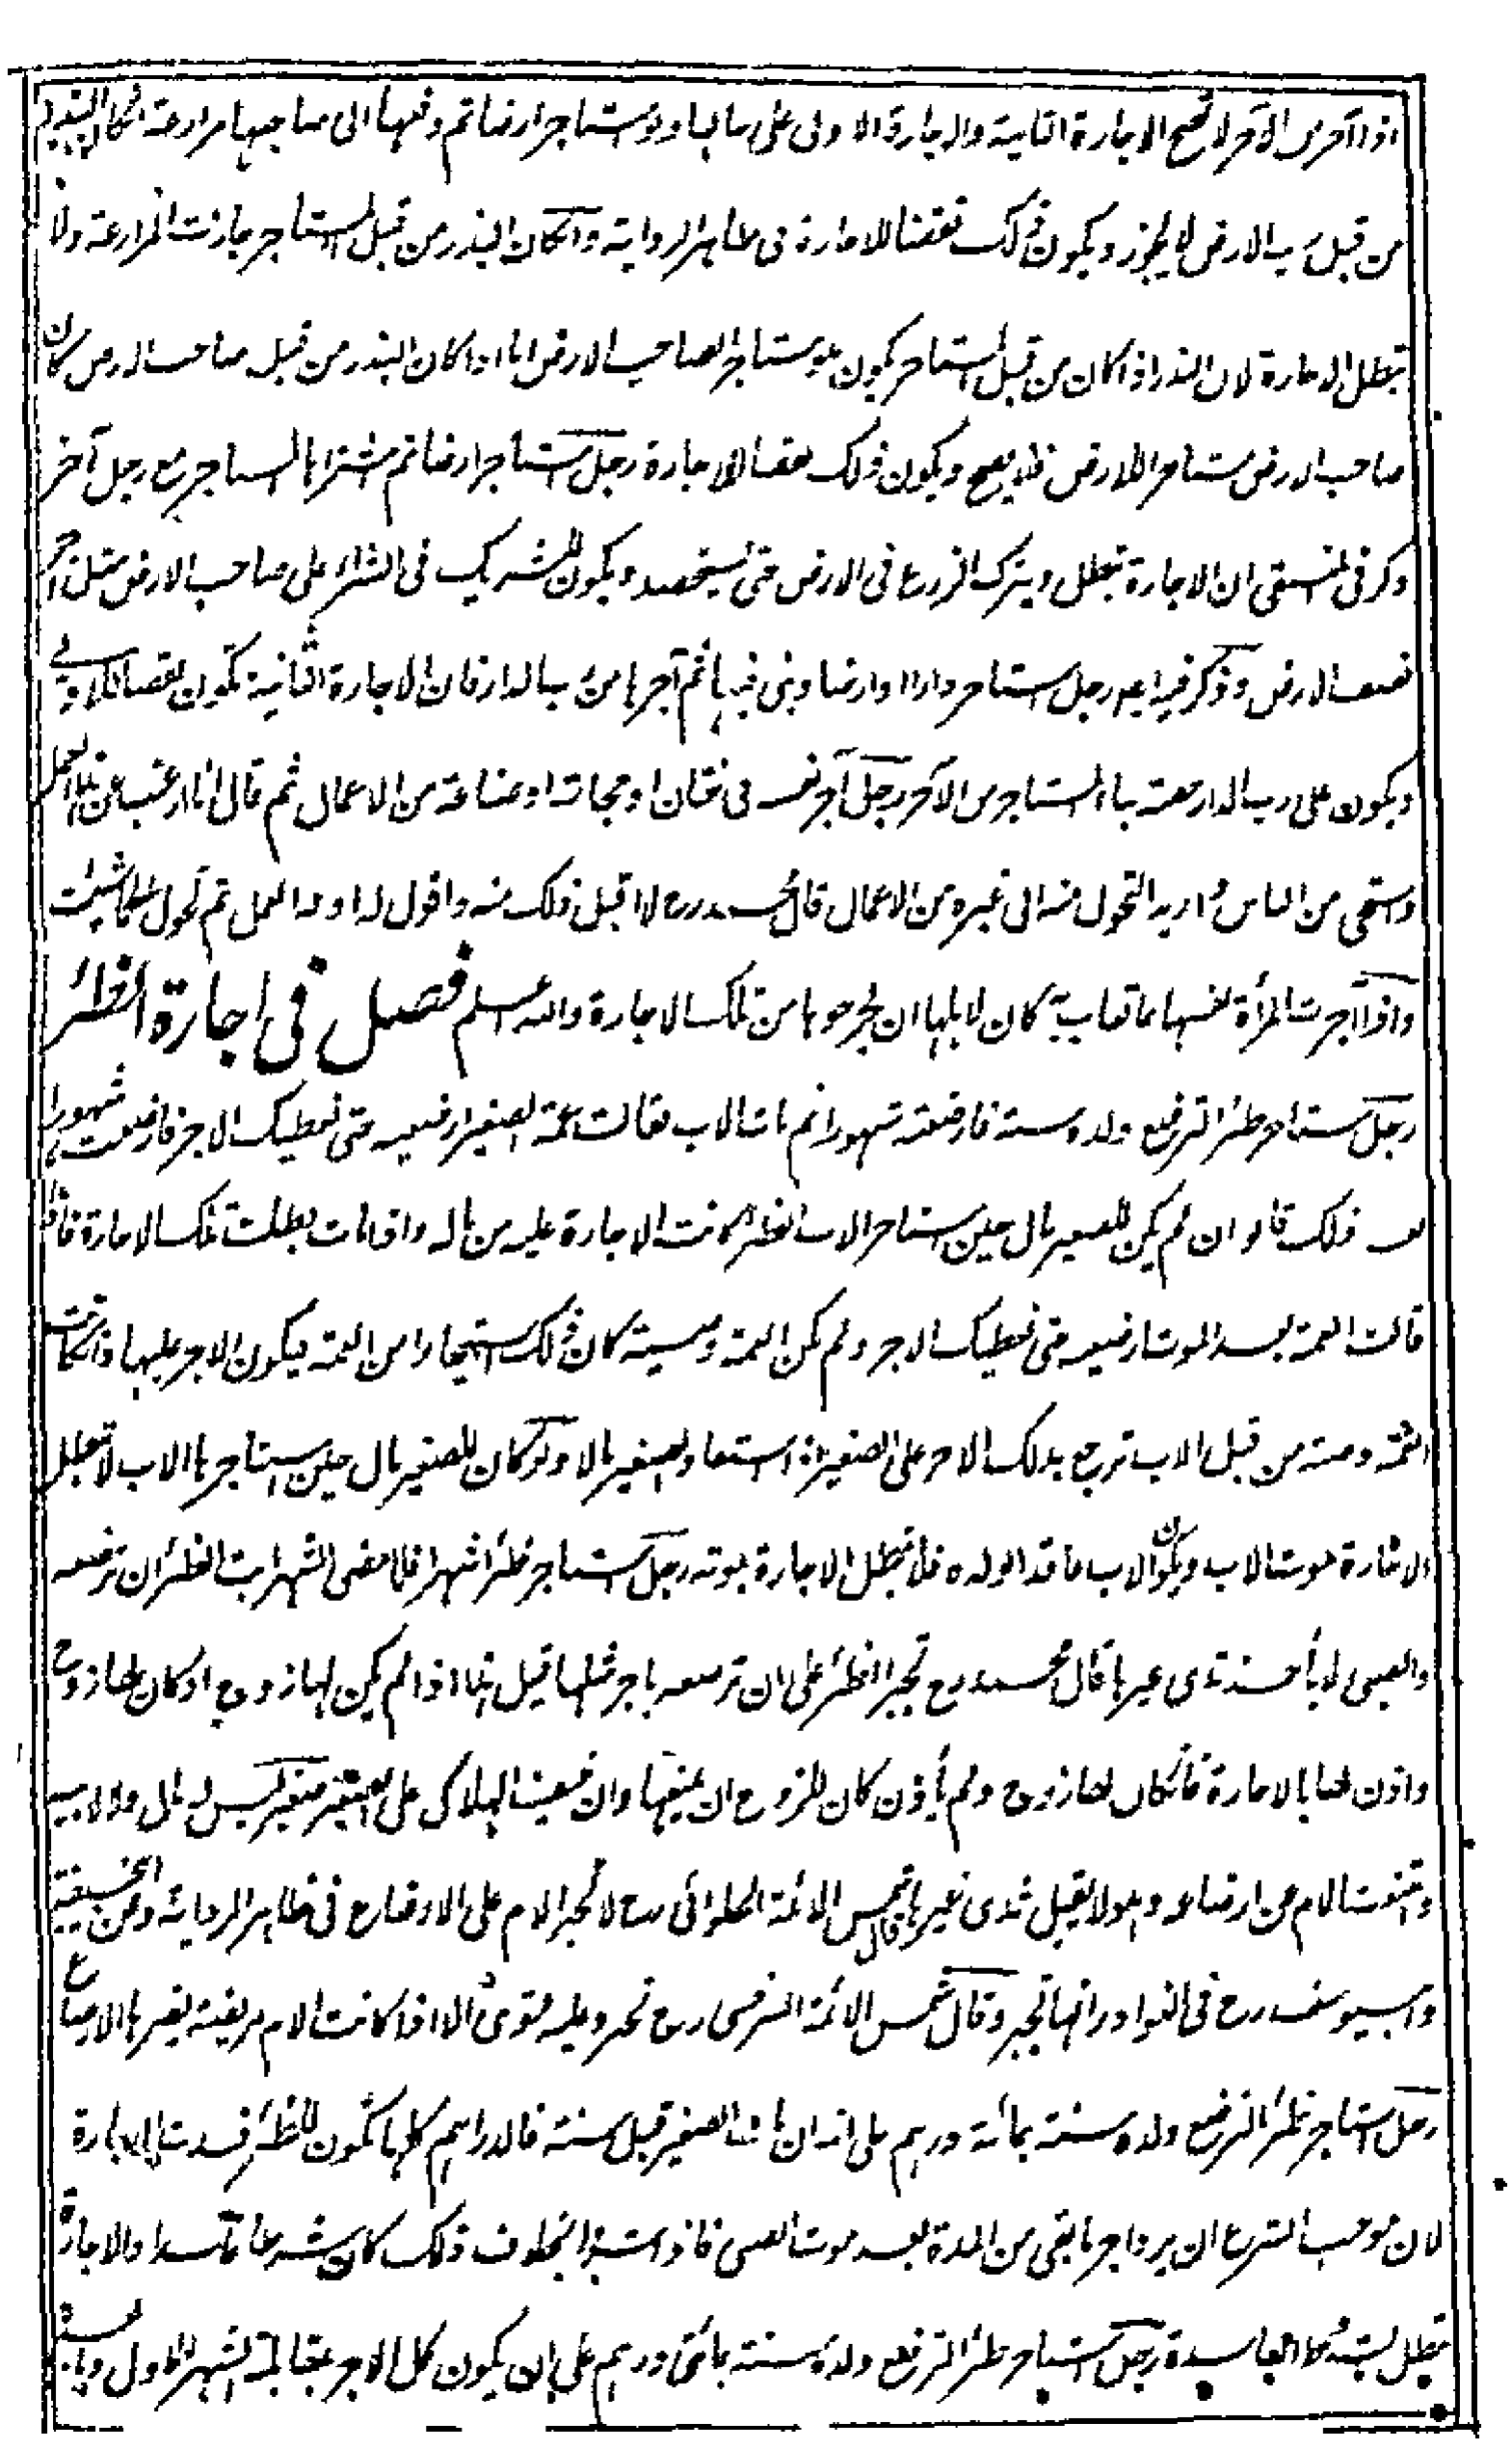 اذا آجر من الآجر لا تصح الاجارة الثانية والاجارة الاولى على حالها ولو استاجر ارضا ثم دفعها الى صاحبها مزارعة ان كان البذر
من قبل رب الارض لا يجوز ويكون ذلك نقضا للاجارة فى ظاهر الرواية وان كان البذر من قبل المستاجر جازت المزارعة ولا
تبطل الاجارة لان البذر اذا كان من قبل المستاجر يكون هو مستاجرا لصاحب الارض اما اذا كان البذر من قبل صاحب الارض كان
صاحب الارض مستاجرا للارض فلا يصح ويكون ذلك نقضا للاجارة رجل استاجر ارضا ثم اشتراها المستاجر مع رجل آخر
ذكر فى المنتقى ان الاجارة تبطل ويترك الزرع فى الارض حتى يستحصد ويكون للشريك فى الشراء على صاحب الارض مثل اجر
نصف الارض وذكر فيه ايضا رجل استاجر دارا او ارضا وبنى فيها ثم آجرها من رب الدار فان الاجارة الثانية تكون نقضا للاولى
ويكون على رب الدار حصة بناء المستاجر من الآجر رجل آجر نفسه فى ختان او حجامة او صناعة من الاعمال ثم قال انا ارغب عن هذا العمل
واستحى من الناس واريد التحول منه الى غيره من الاعمال قال محمد رح لا اقبل ذلك منه واقول له اوف العمل ثم تحول الى ما شئت
واذا آجرت المرأة نفسها بما تعاب به كان لاهلها ان يخرجوها من تلك الاجارة والله اعلم فصل فى اجارة الظئر
رجل استاجر ظئرا لترضع ولده سنة فارضعته شهورا ثم مات الاب فقالت عمة الصغير ارضعيه حتى نعطيك الاجر فارضعت شهورا
بعد ذلك قالوا ان لم يكن للصغير مال حين استاجر الاب الظئر كانت الاجارة عليه من ماله واذا مات بطلت تلك الاجارة فاذا
قالت العمة بعد الموت ارضعيه حتى نعطيك الاجر ولم تكن العمة وصية كان ذلك استيجارا من العمة فيكون الاجر عليها وان كانت
العمة وصية من قبل الاب ترجع بذلك الاجر على الصغير اذا استفاد الصغير مالا ولو كان للصغير مال حين استاجرها الاب لا تبطل
الاجارة بموت الاب ويكون الاب عاقدا لولده فلا تبطل الاجارة بموته رجل استاجر ظئرا شهرا فلما مضى الشهر ابت الظئر ان ترضعه
والصبى لا يأخذ ثدى غيرها قال محمد رح تجبر الظئر على ان ترضعه باجر مثلها قيل هذا اذا لم يكن لها زوج او كان لها زوج
واذن لها بالاجارة فان كان لها زوج ولم يأذن كان للزوج ان يمنعها وان خيف الهلاك على الصغير صغير ليس له مال ولا لابيه
وامتنعت الام عن ارضاعه وهو لا يقبل ثدى غيرها قال شمس الائمة الحلوائى رح لا تجبر الام على الارضاع فى ظاهر الرواية وعن ابيحنيفة
وابيوسف رح فى النوادر انها تجبر وقال شمس الائمة السرخسى رح تجبر وعليه فتوى الا اذا كانت الام مريضة يضرها الارضاع
رجل استاجر ظئرا لترضع ولده سنة بمائة درهم على انه ان مات الصغير قبل سنة فالدراهم كلها تكون للظئر فسدت الاجارة
لان موجب الشرع ان يرد اجر ما بقى من المدة بعد موت الصبى فاذا شرط بخلاف ذلك كان شرطا فاسدا والاجارة
تبطل بشروط الفاسدة رجل استاجر ظئرا لترضع ولده سنة بمائة درهم على ان يكون كل الاجر بمقابلة الشهر الاول وما بعده